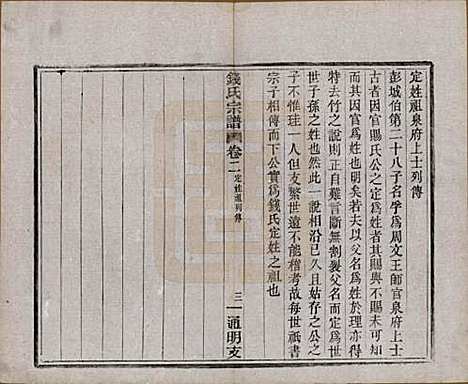 定姓祖泉府上士列傳
彭城伯第二十八子名孚爲周文王師官泉府上士
古者因官賜氏公之定爲姓者其賜與不賜未可知
而其因官爲姓也明矣若夫以父名爲姓於理亦得
特去竹之說則正自難言斷無割裂父名而定爲世
世子孫之姓也然此一說相沿已久且姑存之公之
子不惟珪一人但支繁世遠不能稽考故每世祇書
宗子相傳而下公實爲錢氏定姓之祖也
錢氏宗譜 卷二 定姓祖列傳
三 通明支